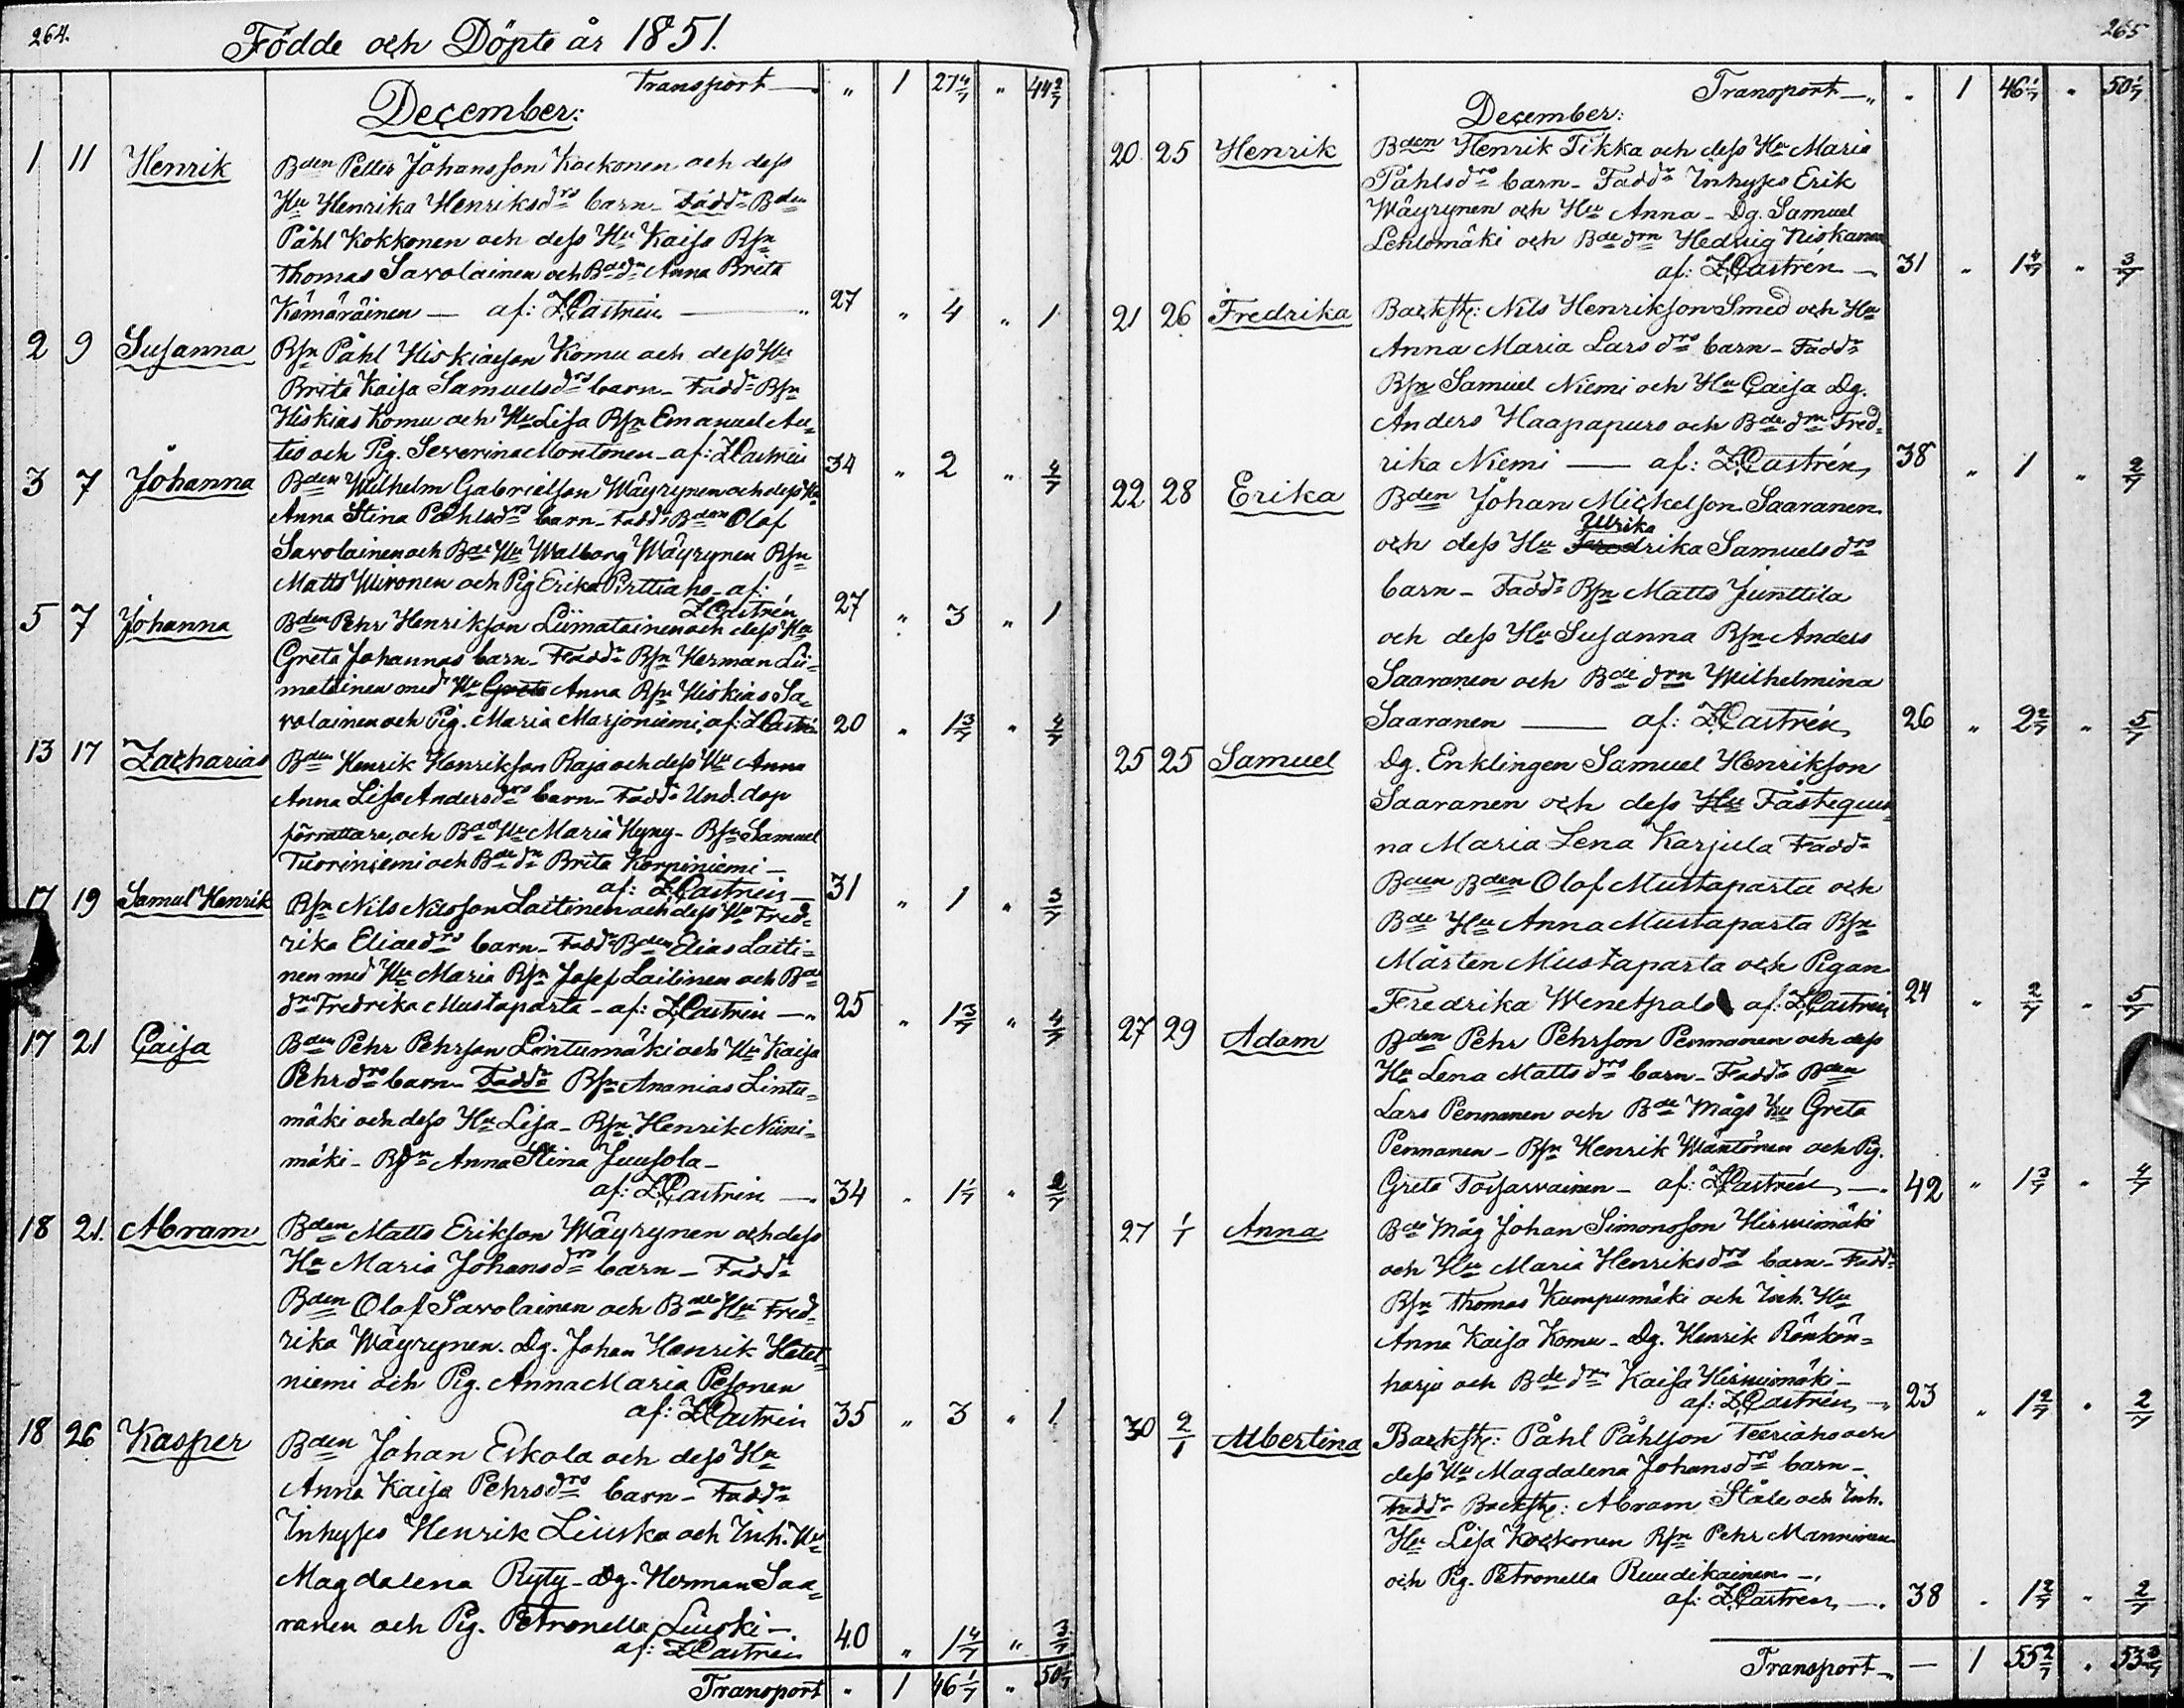 264.
Födde och Döpte år 1851.
Transport — „ 1 27 4/7 „ 44 2/7
December:
1 11 Henrik Bden Petter Johansson Kockonen och dess
Hu Henrika Henriksdrs barn — Faddr Bden
Påhl Kokkonen och dess Hu Kaisa Bsn
Thomas Savolainen och Bdedn Anna Brita
Kämäräinen — af: Z Castrén — 27 „ 4 „ 1
2 9 Susanna Bsn Påhl Hiskiasson Komu och dess Hu
Brita Kaisa Samuelsdrs barn — Faddr Bsn
Hiskias Komu och Hu Lisa Bsn Emanuel Au„
tio och Pig. Severina Montonen — af: Z Castrén 34 „ 2 „ 4/7
3 7 Johanna Bden Wilhelm Gabrielsson Wäyrynen och dess Hu
Anna Stina Påhlsdrs barn — Faddr Bden Olof
Savolainen och Bde Hu Walborg Wäyrynen Bsn
Matts Wironen och Pig Erika Pirttiaho — af:
Z Castrén 27 „ 3 „ 1
5 7 Johanna Bden Pehr Henriksson Liimatainen och dess Hu
Greta Johannas barn — Faddr Bsn Herman Lii=
matainen med Hu Greta Anna Bsn Hiskias Sa=
volainen och Pig. Maria Marjoniemi, af: Z Castrén 20 „ 1 3/7 „ 4/7
13 17 Zacharias Bden Henrik Henriksson Raja och dess Hu Anna
Anna Lisa Andersdrs barn — Faddr Und. dop
förrättare, och Bde Hu Maria Hyny — Bsn Samuel
Tuoriniemi och Bdedn Brita Korpiniemi —
af: Z Castrén — 31 „ 1 „ 3/7
17 19 Samuel Henrik Bsn Nils Nilsson Laitinen och dess Hu Fred=
rika Eliaedrs barn — Faddr Bden Elias Laiti=
nen med Hu Maria Bsn Josep Laitinen och Bde
drn Fredrika Mustaparta — af: Z Castrén — 25 „ 1 3/7 „ 4/7
17 21 Caisa Bden Pehr Pehrson Lintumäki och Hu Kaisa
Pehrdrs barn — Faddr Bsn Ananias Lintu=
mäki och dess Hu Lisa — Bsn Henrik Niini=
mäki — Bdn Anna Stina Juusola —
af: Z Castrén — 34 „ 1 1/7 „ 2/7
18 21. Abram Bden Matts Eriksson Wäyrynen och dess
Hu Maria Johansdrs barn — Faddr
Bden Olof Savolainen och Bde Hu Fred=
rika Wäyrynen. Dg. Johan Henrik Hatet=
niemi och Pig. Anna Maria Pesonen
af: Z Castrén 35 „ 3 „ 1
18 26 Kasper Bden Johan Eskola och dess Hu
Anna Kaisa Pehrsdrs barn — Faddr
Inhyses Henrik Liuska och Inh. Hu
Magdalena Ryty — Dg. Herman Saa=
ranen och Pig. Petronella Liuski —
af: Z Castrén 40 „ 1 4/7 „ 3/7
Transport „ 1 46 1/7 „ 50 1/7
265
Transport — „ „ 1 46 1/7 „ 50 1/7
December:
20 25 Henrik Bden Henrik Tikka och dess Hu Maria
Påhlsdrs barn — Faddr Inhyses Erik
Wäyrynen och Hu Anna — Dg. Samuel
Lehtomäki och Bdedrn Hedvig Niskanen
af: Z Castrén — 31 „ 1 4/7 „ 3/7
21 26 Fredrika Backsty: Nils Henriksson Smed och Hu
Anna Maria Larsdrs barn — Faddr
Bsn Samuel Niemi och Hu Caisa Dg.
Anders Haapapuro och Bdedrn Fred=
rika Niemi — af: Z Castrén, 38 „ 1 „ 2/7
22 28 Erika Bden Johan Mickelson Saaranen
Ulrika
och dess Hu Fredrika Samuelsdrs
barn — Faddr Bsn Matts Junttila
och dess Hu Susanna Bsn Anders
Saaranen och Bde drn Wilhelmina
Saaranen — af: Z Castrén 26 „ 2 2/7 „ 5/7
25 25 Samuel Dg. Enklingen Samuel Henrikson
Saaranen och dess Hu Fästequin
na Maria Lena Karjula Faddr
Bden Olof Mustaparta och
Bde Hu Anna Mustaparta Bsn
Mårten Mustaparta och Pigan
Fredrika Wenetpalo af: Z Castrén 24 „ 2/7 „ 5/7
27 29 Adam Bden Pehr Pehrson Pennanen och dess
Hu Lena Mattsdrs barn — Faddr Bden
Lars Pennanen och Bde Mågs Hu Greta
Pennanen — Bsn Henrik Wäntönen och Pig.
Greta Torjarvainen — af: Z Castrén — 42 „ 1 3/7 „ 4/7
27 1/1 Anna Bde Måg Johan Simonsson Hirvimäki
och Hu Maria Henriksdrs barn — Faddr
Bsn Thomas Kumpumäki och Inh. Hu
Anna Kaisa Komu — Dg. Henrik Rönkön=
harju och Bdedrn Kaisa Hirvimäki —
af: Z Castrén — 23 „ 1 2/7 „ 2/7
30 2/1 Albertina Backsty: Påhl Påhlson Teeriaho och
dess Hu Magdalena Johansdrs barn —
Faddr Backsty: Abram Ståle och Inh.
Hu Lisa Kockonen Bsn Pehr Manninen
och Pig. Petronella Ruudikainen —
af: Z Castrén — 38 „ 1 2/7 „ 2/7
Transport — — 1 55 2/7 „ 53 3/7